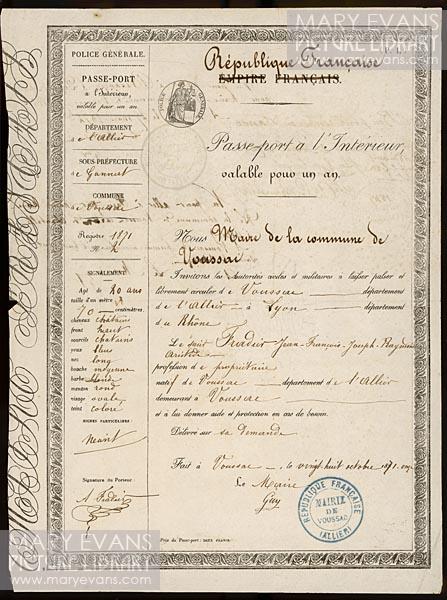 MARY EVANS
PICTURE LIBRARY
POLICE GÉNÉRALE.
PASSE-PORT
à l'Intérieur,
valable pour un an.
DÉPARTEMENT
de l'allier
SOUS-PRÉFECTURE
de Gannat
COMMUNE
de Voussac
Registre 1871
N.° 2
SIGNALEMENT
Agé de 20 ans
taille d'un mètre
70 centimètres.
cheveux chatains
front haut
sourcils chatains
yeux bleus
nez long
bouche moyenne
barbe blonde
menton rond
visage ovale
teint coloré
SIGNES PARTICULIERS :
neant
Signature du Porteur
A Fradier
République Française
EMPIRE FRANÇAIS.
Passe-port à l'Intérieur,
valable pour un an.
Nous Maire de la commune de
Voussac
Invitons les Autorités civiles et militaires à laisser passer et
librement circuler de Voussac département
de l'allier à Lyon département
du Rhône
Le Sieur Fradier Jean-François-Joseph-
aristide
profession de propriétaire
natif de Voussac département de l'allier
demeurant à Voussac
et à lui donner aide et protection en cas de besoin.
Délivré sur sa demande
Fait à Voussac, le vingt huit octobre 1871
Le Maire
Guy
RÉPUBLIQUE FRANÇAISE
MAIRIE
DE
VOUSSAC
(ALLIER)
Prix du Passe-port : DEUX FRANCS.
MARY EVANS
PICTURE LIBRARY
www.maryevans.com